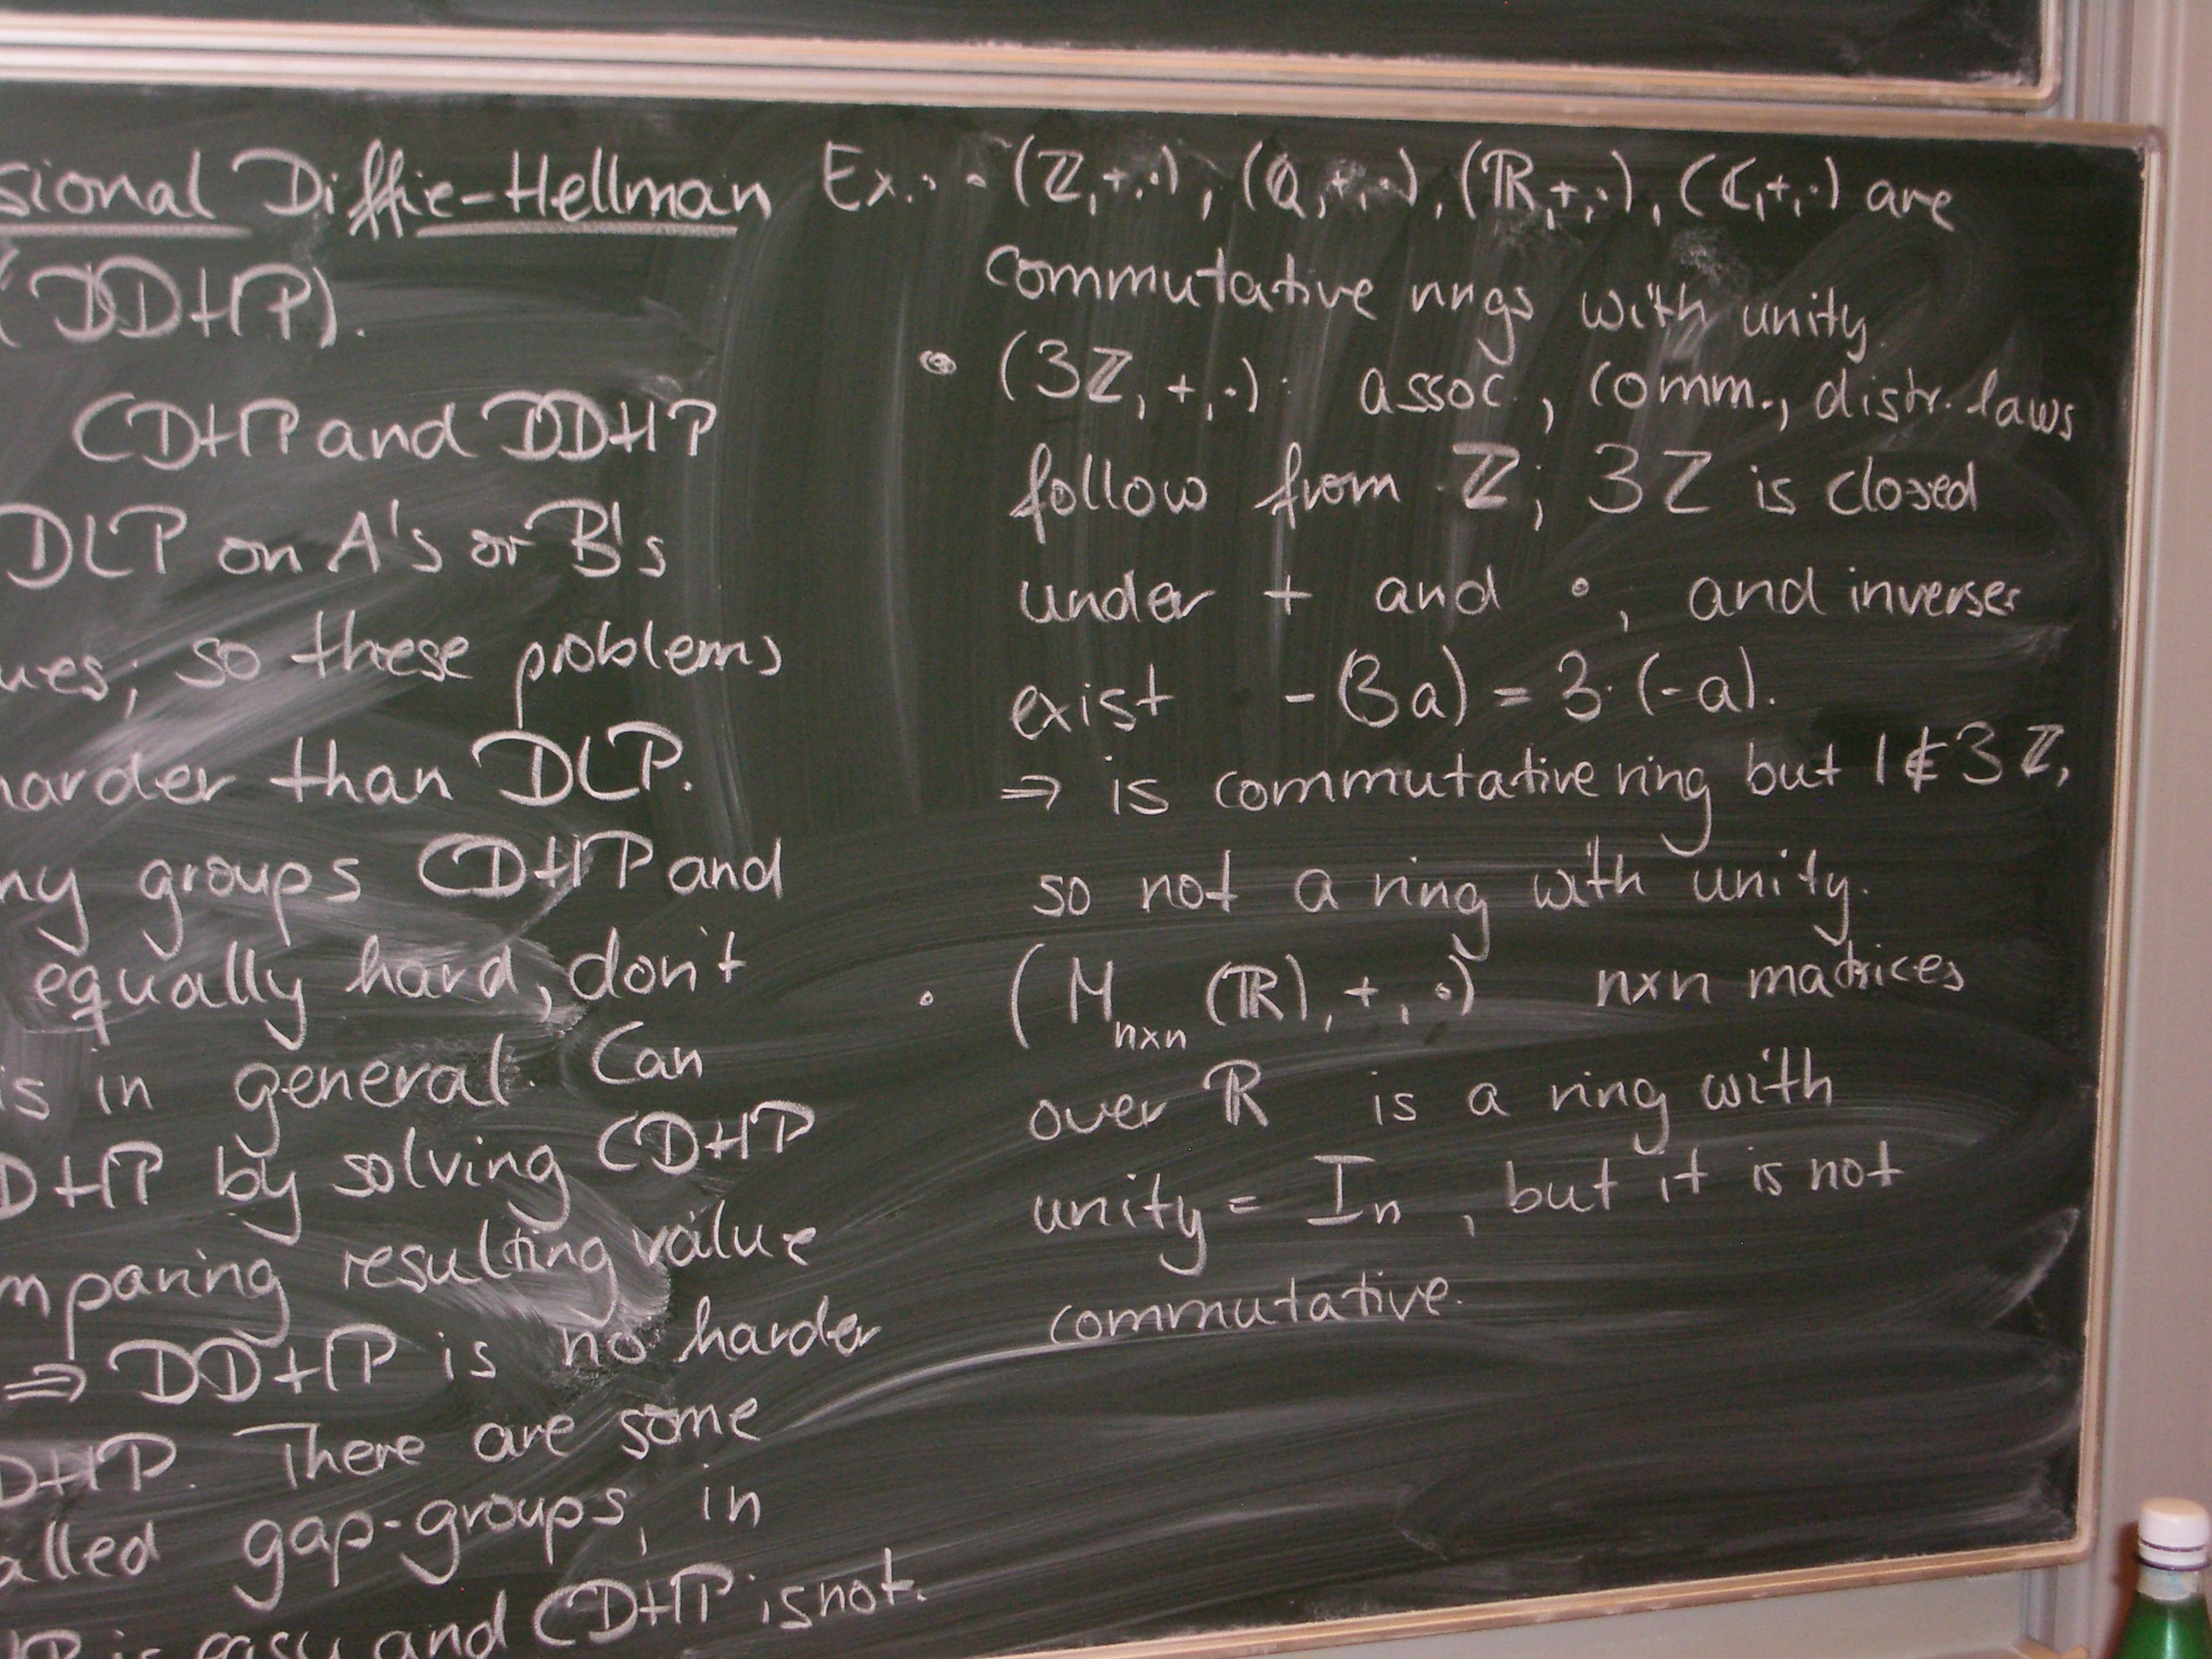 sional Diffie-Hellman
(DDHP).
CDHP and DDHP
DLP on A's or B's
ues; so these problems
harder than DLP.
ny groups CDHP and
equally hard, don't
is in general. Can
DHP by solving CDHP
mparing resulting value
⇒ DDHP is no harder
DHP. There are some
alled gap-groups, in
HP is easy and CDHP is not.
Ex.: - (ℤ,+,·), (ℚ,+,·), (ℝ,+,·), (ℂ,+,·) are
commutative rings with unity.
• (3ℤ,+,·): assoc., comm., distr. laws
follow from ℤ; 3ℤ is closed
under + and •, and inverses
exist -(3a) = 3·(-a).
⇒ is commutative ring but 1∉3ℤ,
so not a ring with unity.
• (M_{n×n} (ℝ), +, ·) n×n matrices
over ℝ is a ring with
unity = I_n, but it is not
commutative.